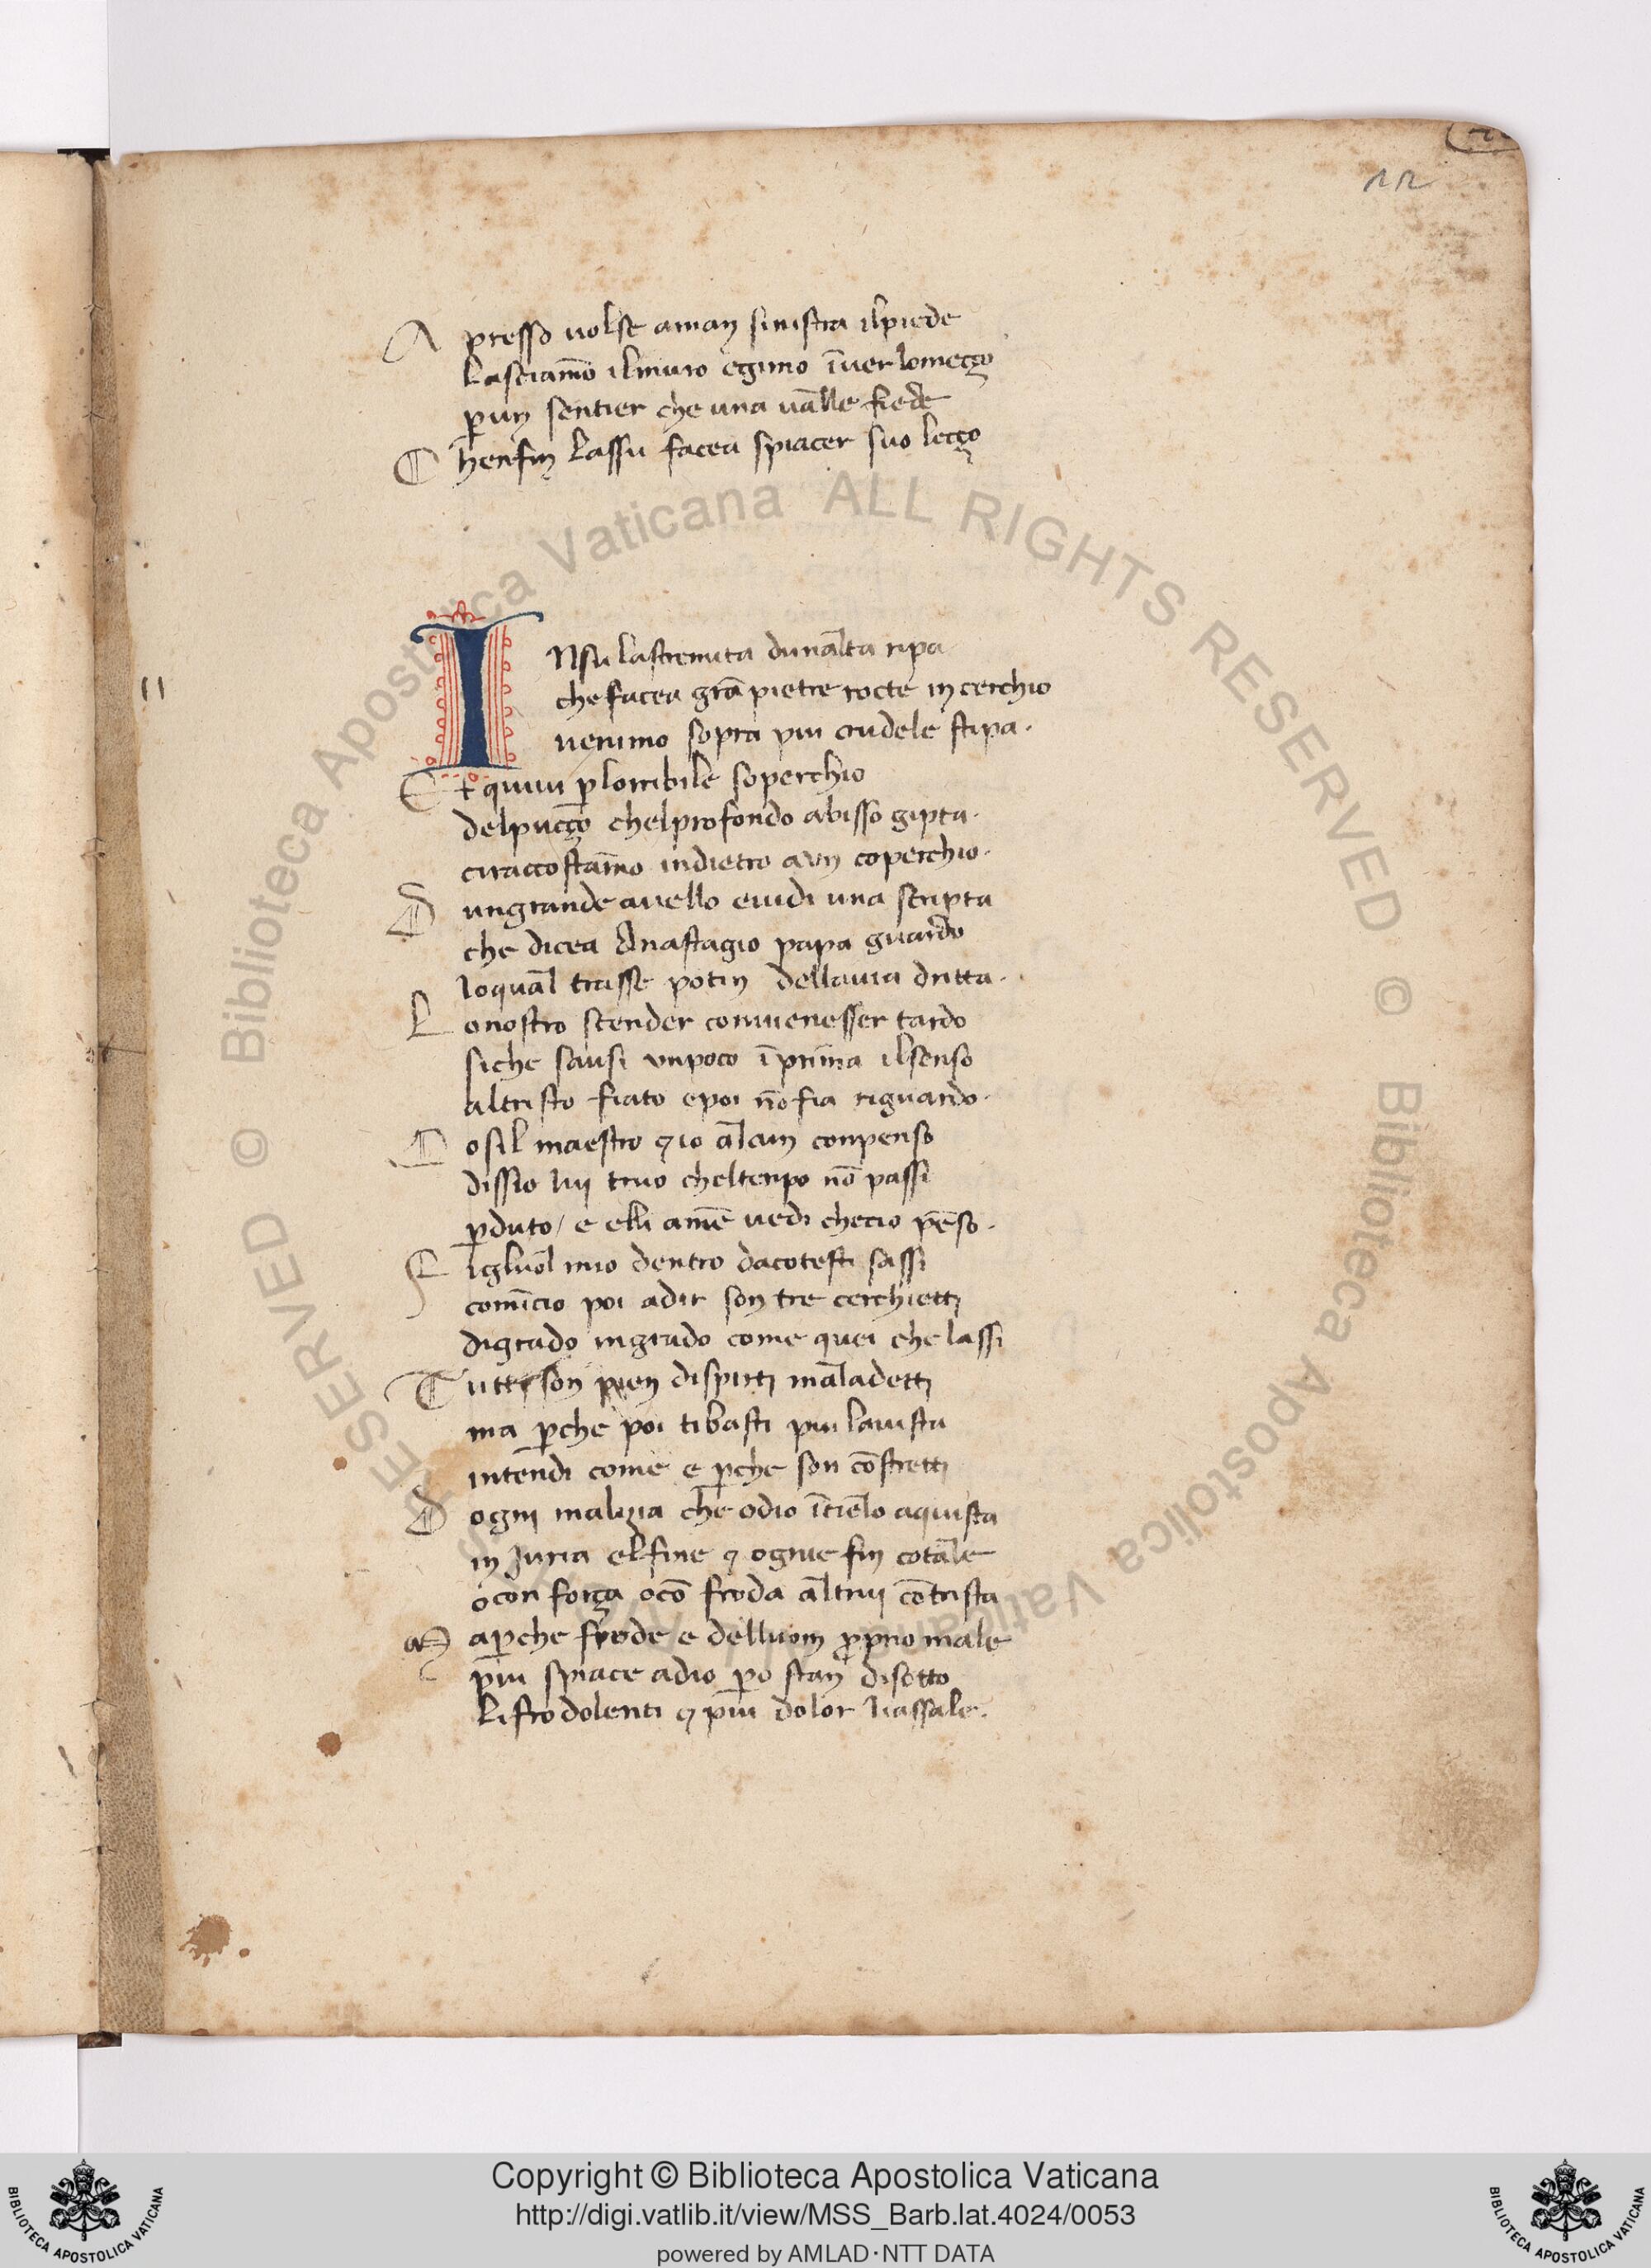 22
A presso uolse aman sinistra ilpiede
Lasciam̄o ilmuro egimo īuer lomeçço
p̲ un sentier che una ualle fiede
C henfin Lassu facea spiacer suo leçço
11
I Nsu lastremita dunalta ripa
che facea grā pietre rocte in cerchio
uenimo sopra piu crudele stipa.
E t quiui p̲ lorribile soperchio
delpucço chelprofondo abisso gipta.
ciraccostam̄o indietro aun coperchio.
D ungrande auello euidi una scripta
che dicea Anastagio papa guardo
loqual trasse potin dellauia dritta.
L onostro scender conuienesser tardo
siche sausi unpoco ī prima ilsenso
altristo fiato epoi nō fia riguardo.
C osil maestro ⁊ io alcun conpenso
dissio lui truo cheltenpo nō passi
p̲duto / e elli amē uedi checio pēso.
F igliuol mio dentro dacotesti sassi
comīcio poi adir son tre cerchietti
digrado ingrado come quei che lassi
T utti son pien dispirti maladetti
ma p̲che poi tibasti piu lauista
intendi come e p̲che son cōstretti
D ogni malizia che odio ī cielo aquista
in Juria elfine ⁊ ogniefin cotale
o con força o cō froda altrui cōtrista
M a p̲che frode e delluom p̲prio male
piu spiace adio p̲o stan disotto
Lifrodolenti ⁊ piu dolor liassale.
© Biblioteca Apostolica Vaticana ALL RIGHTS RESERVED © Biblioteca Apostolica Vaticana ALL RIGHTS RESERVED
Copyright © Biblioteca Apostolica Vaticana
http://digi.vatlib.it/view/MSS_Barb.lat.4024/0053
powered by AMLAD·NTT DATA
BIBLIOTECA APOSTOLICA VATICANA
BIBLIOTECA APOSTOLICA VATICANA